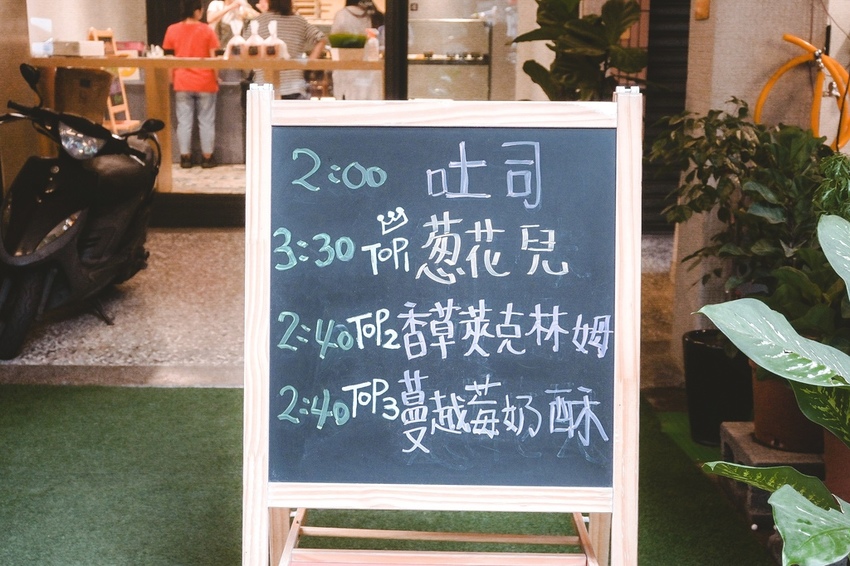 2:00 吐司
3:30 TOP1 葱花兒
2:40 TOP2 香草萊克林姆
2:40 TOP3 蔓越莓奶酥